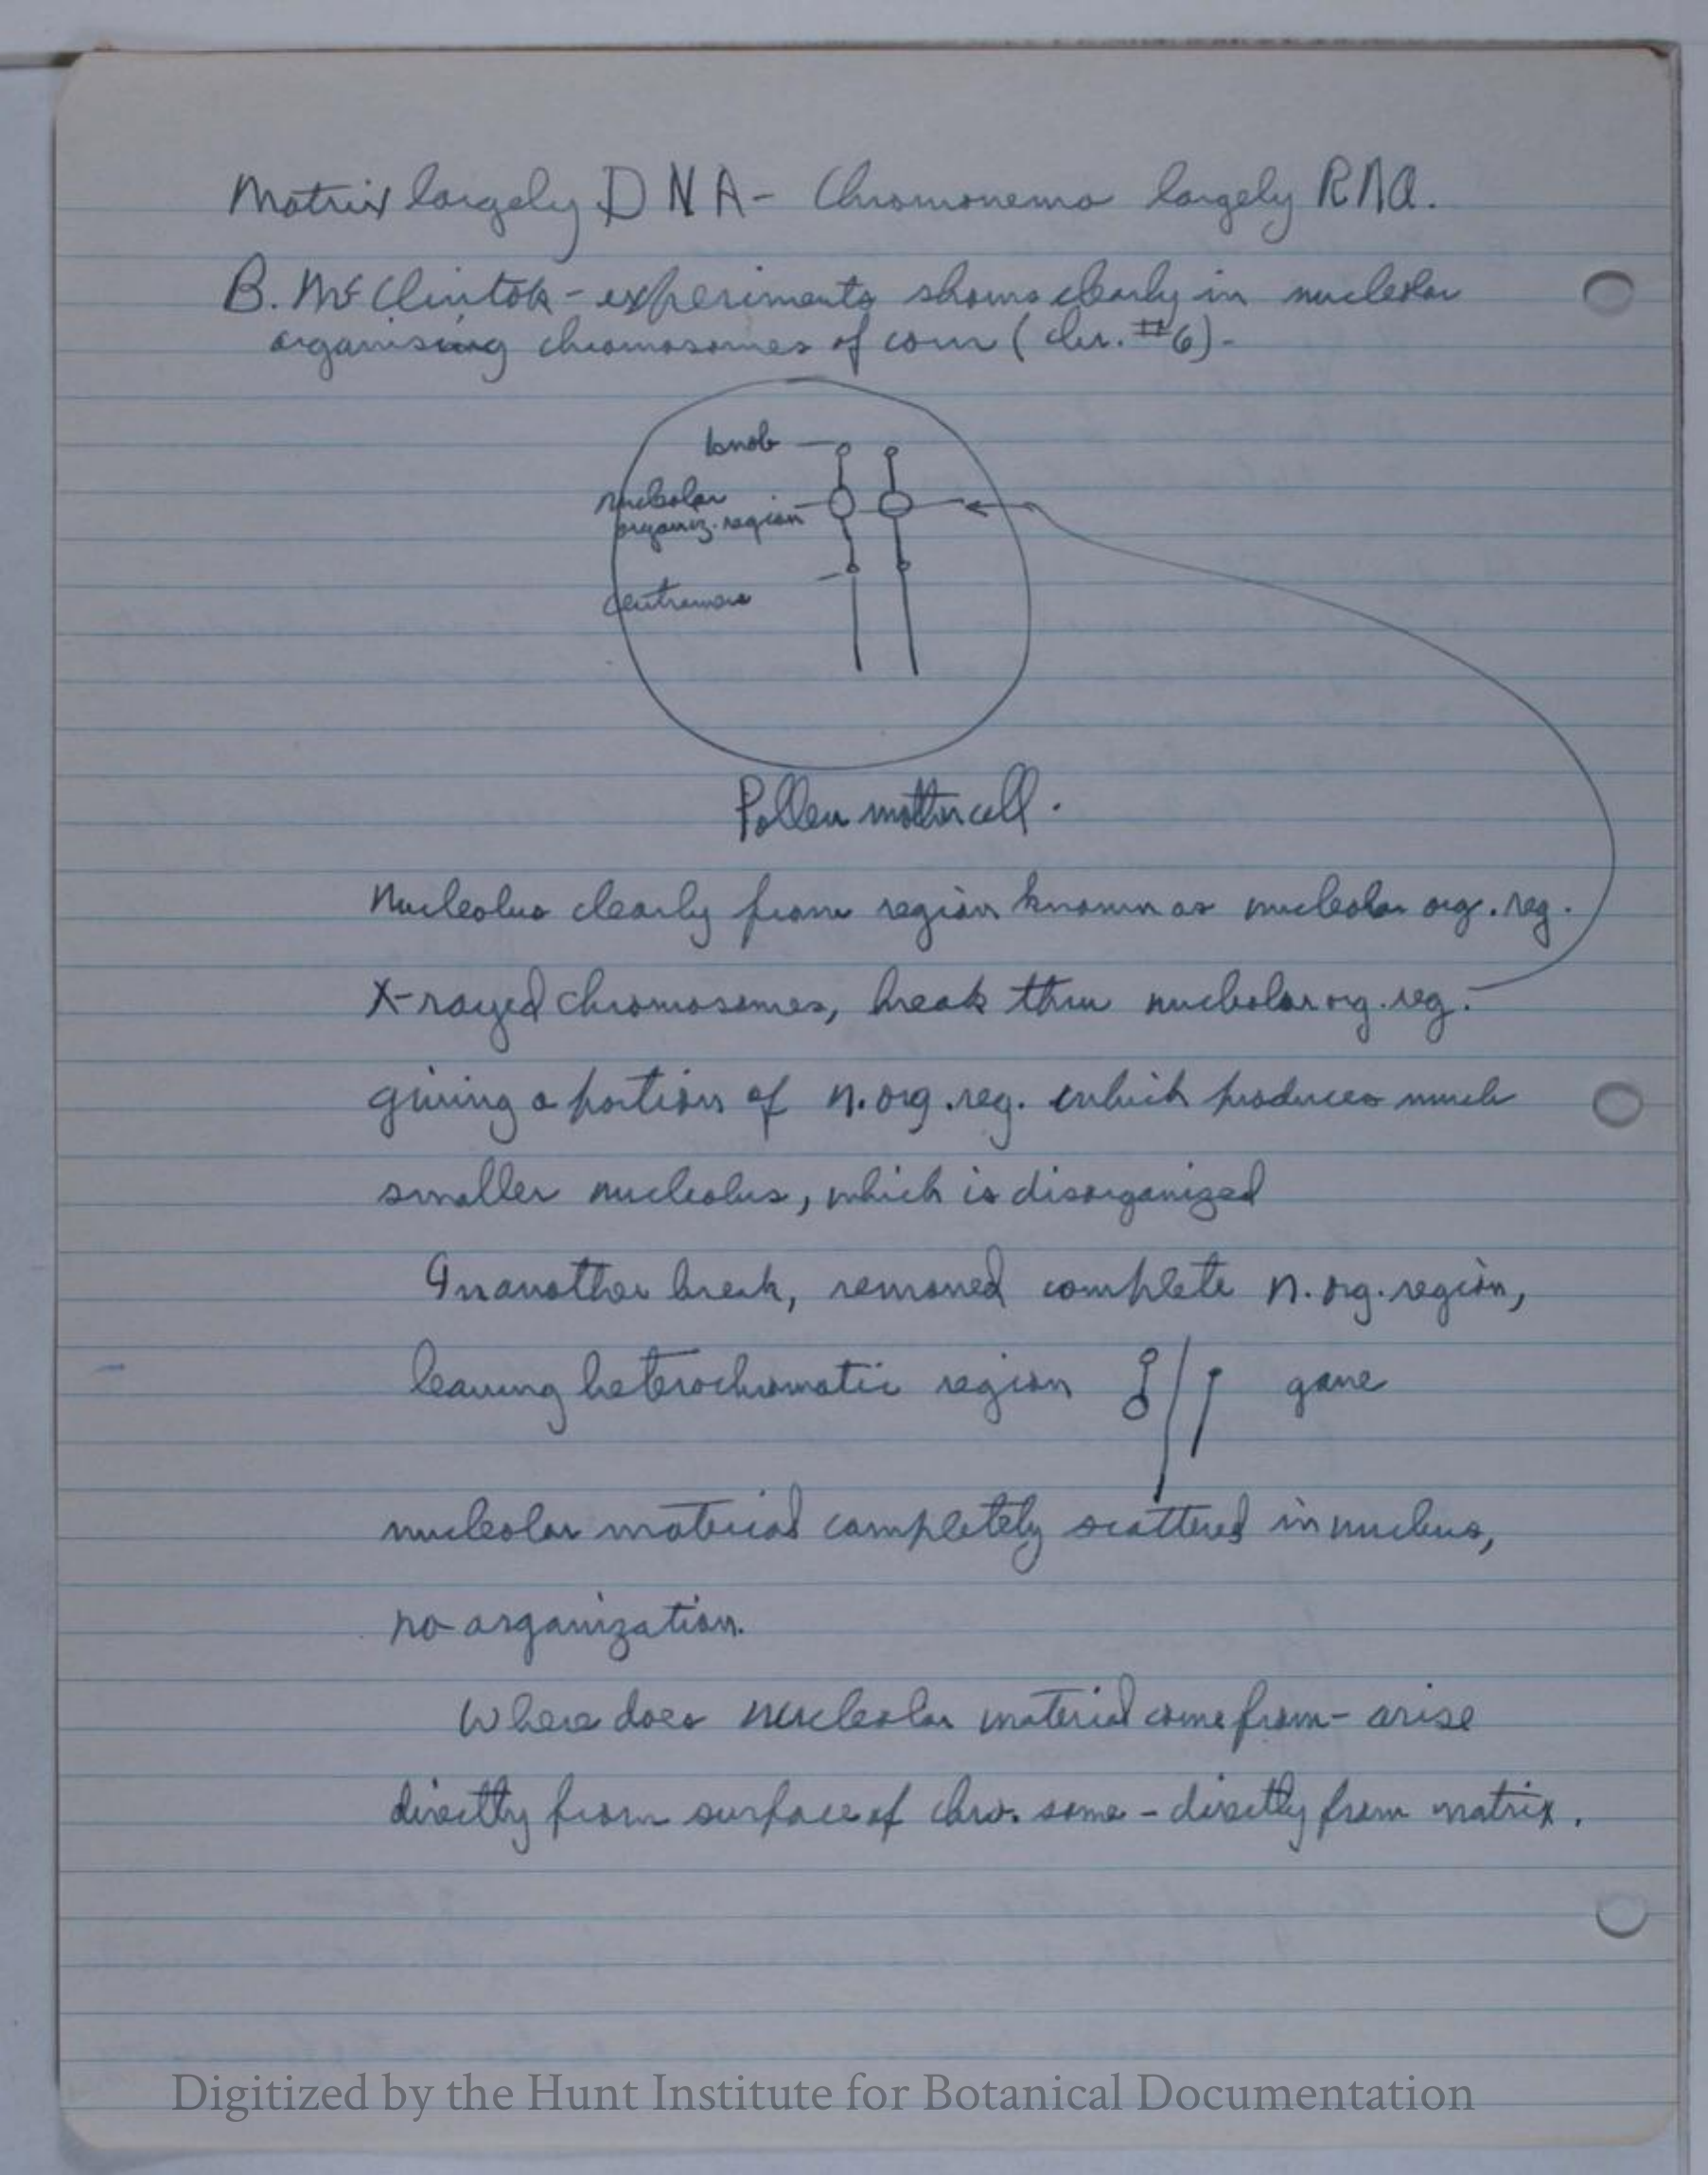 Matrix largely DNA - Chromonema largely RNA.
B. McClintok - experiments shows clearly in nucleolar
organising chromosomes of corn (chr. #6) -
knob
nucleolar
organiz. region
centromere
Pollen mother cell.
Nucleolus clearly from region known as nucleolar org. reg.
X-rayed chromosomes, break thru nucleolar org. reg.
giving a portion of n. org. reg. which produces much
smaller nucleolus, which is disorganized
In another break, removed complete n. org. region,
leaving heterochromatic region gave
nucleolar material completely scattered in nucleus,
no organization.
Where does nucleolar material come from - arise
directly from surface of chro. some - directly from matrix.
Digitized by the Hunt Institute for Botanical Documentation